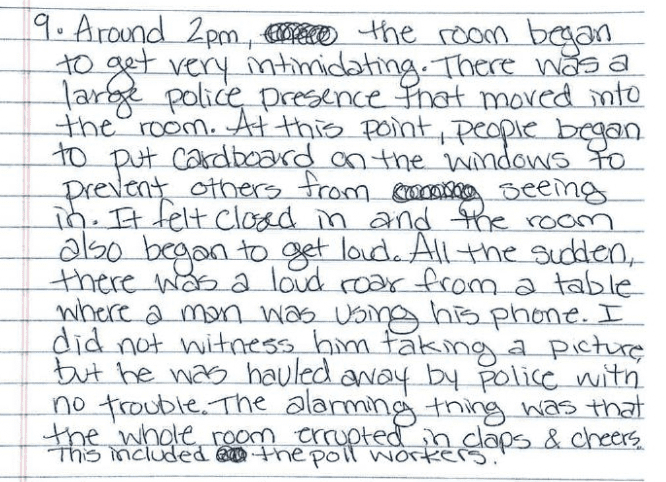 9. Around 2pm, the room began
to get very intimidating. There was a
large police presence that moved into
the room. At this point, people began
to put cardboard on the windows to
prevent others from seeing
in. It felt closed in and the room
also began to get loud. All the sudden,
there was a loud roar from a table
where a man was using his phone. I
did not witness him taking a picture,
but he was hauled away by police with
no trouble. The alarming thing was that
the whole room errupted in claps & cheers.
This included the poll workers.